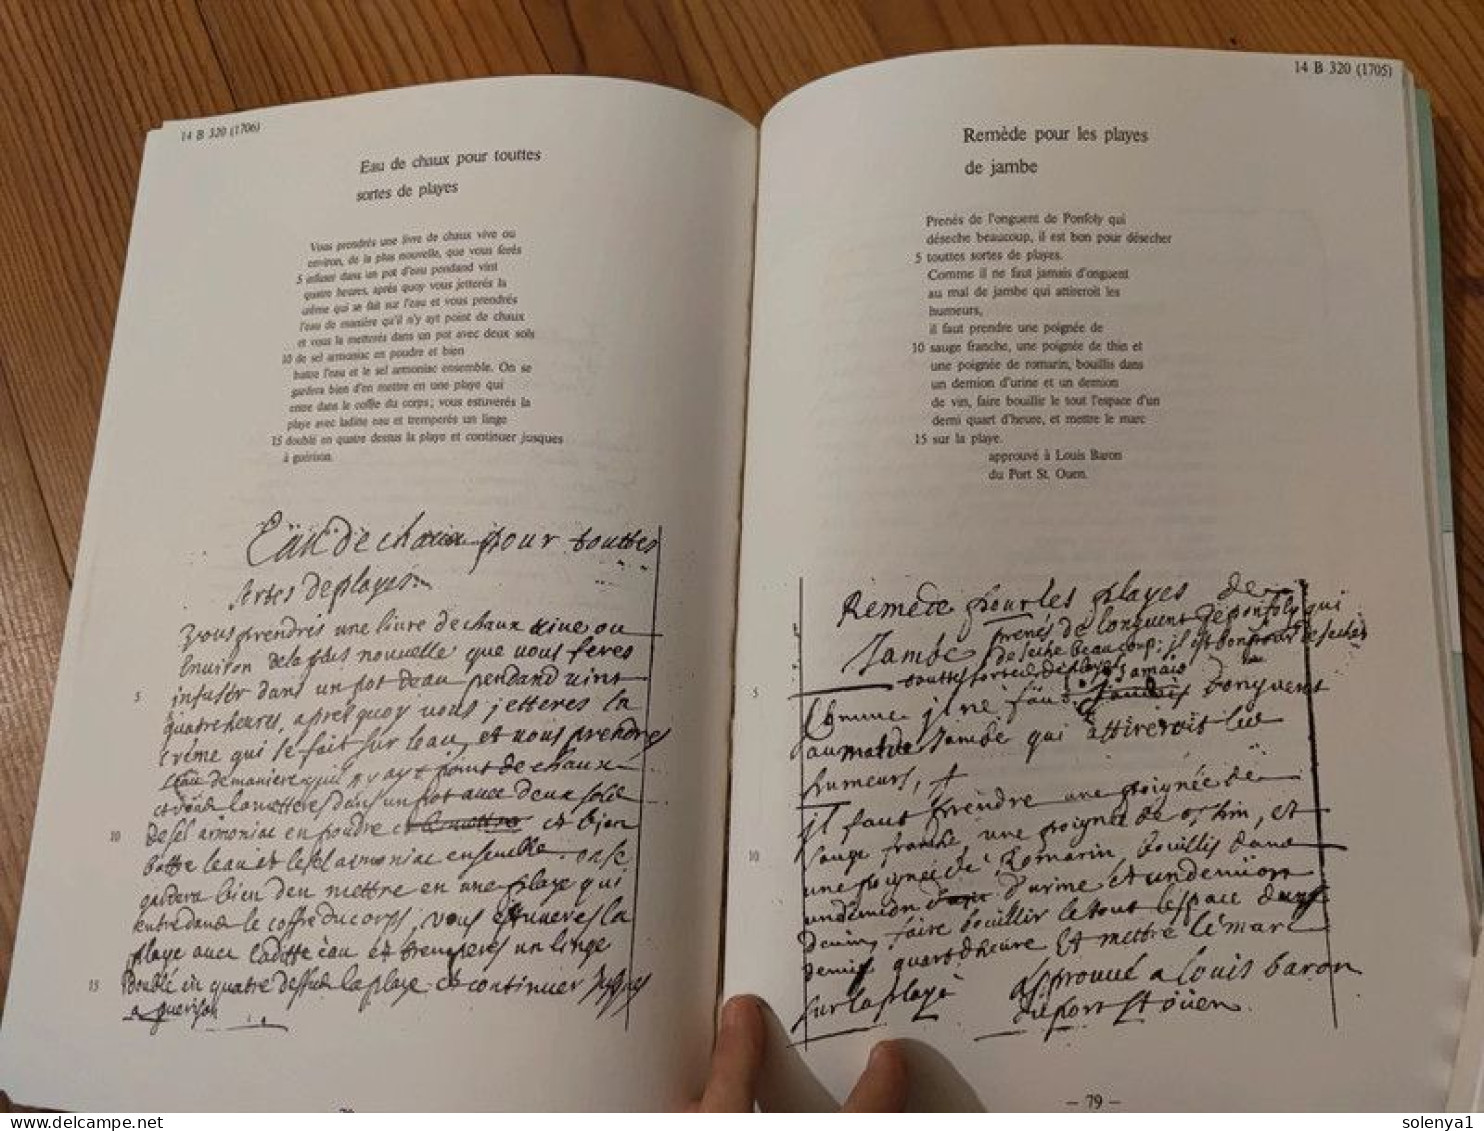 14 B 320 (1706)
Eau de chaux pour touttes
sortes de playes
Vous prendrés une livre de chaux vive ou
environ, de la plus nouvelle, que vous ferés
5 infuser dans un pot d'eau pendand vint
quatre heures, après quoy vous jetterés la
crême qui se fait sur l'eau et vous prendrés
l'eau de manière qu'il n'y ayt point de chaux
et vous la metterés dans un pot avec deux sols
10 de sel armoniac en poudre et bien
battre l'eau et le sel armoniac ensemble. On se
gardera bien d'en mettre en une playe qui
entre dans le coffre du corps; vous estuverés la
playe avec ladite eau et tremperés un linge
15 doublé en quatre dessus la playe et continuer jusques
à guérison.
Eau de chaux pour touttes
sortes de playes
Vous prendrés une livre de chaux vive ou
environ de la plus nouvelle que vous feres
5 infuser dans un pot deau pendand vint
quatre heures, apres quoy vous jetteres la
crême qui se fait sur leau et vous prendres
leau de maniere quil ny ayt point de chaux
et vous la metteres dans un pot avec deux sols
10 de sel armoniac en poudre et bien
battre leau et le sel armoniac ensemble. on se
gardera bien den mettre en une playe qui
entre dans le coffre du corps, vous estuveres la
playe avec laditte eau et tremperes un linge
15 doublé en quatre dessus la playe et continuer jusques
a guerison
14 B 320 (1705)
Remède pour les playes
de jambe
Prenés de l'onguent de Ponfoly qui
déseche beaucoup, il est bon pour désecher
5 touttes sortes de playes.
Comme il ne faut jamais d'onguent
au mal de jambe qui attireroit les
humeurs,
il faut prendre une poignée de
10 sauge franche, une poignée de thin et
une poignée de romarin, bouillis dans
un demion d'urine et un demion
de vin, faire bouillir le tout l'espace d'un
demi quart d'heure, et mettre le marc
15 sur la playe.
approuvé à Louis Baron
du Port St. Ouen.
Remede pour les playes de
Jambe prenés de longuent de ponfoly qui
deseche beaucoup; il est bon pour desecher
touttes sortes de playes
5 Comme il ne faud jamais donguent
au mal de Jambe qui attireroit les
humeurs, +
il faut prendre une poignée de
sauge franche, une poignée de thin, et
10 une poignée de Romarin, bouillis dans
un demion d'urine et un demion
de vin, faire bouillir le tout lespace dun
demis quart dheure et mettre le marc
sur la playe approuvé a Louis baron
du port St oüen.
— 79 —
solenya1